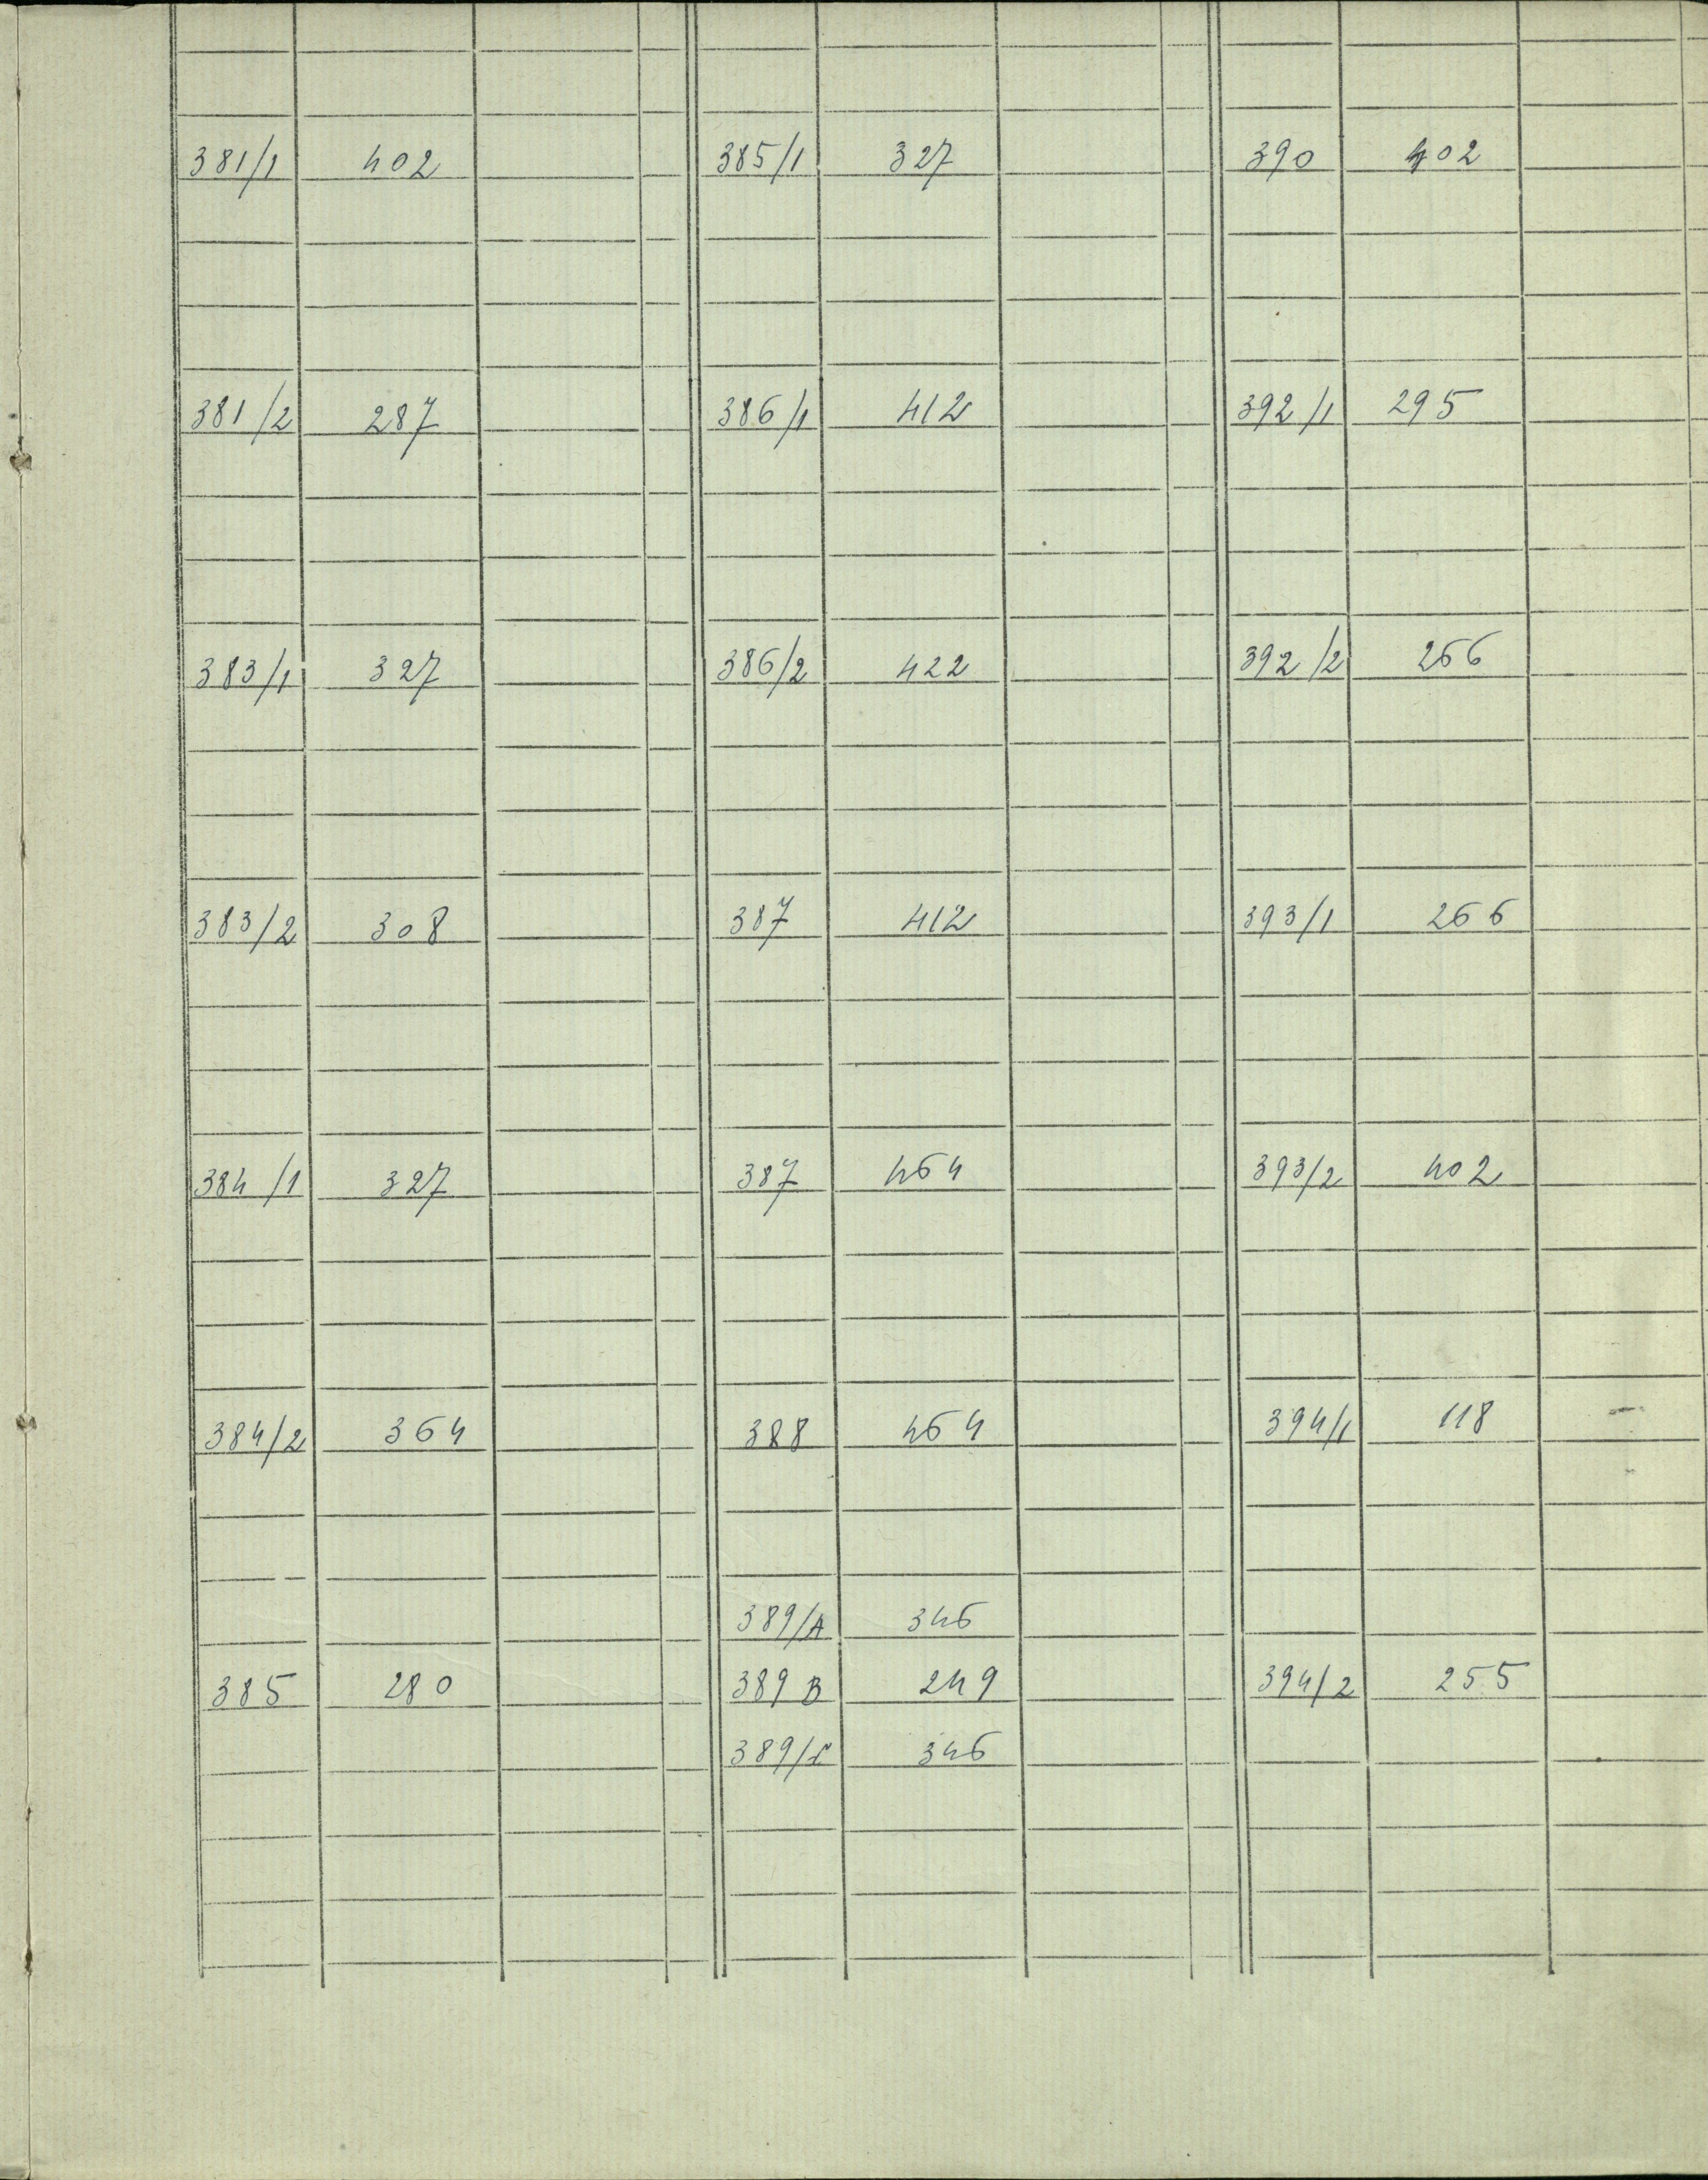 381/1 402
381/2 287
383/1 327
383/2 308
384/1 327
384/2 364
385 280
385/1 327
386/1 412
386/2 422
387 412
387 464
388 464
389/A 346
389 B 249
389/C 346
390 402
392/1 295
392/2 266
393/1 266
393/2 402
394/1 118
394/2 255